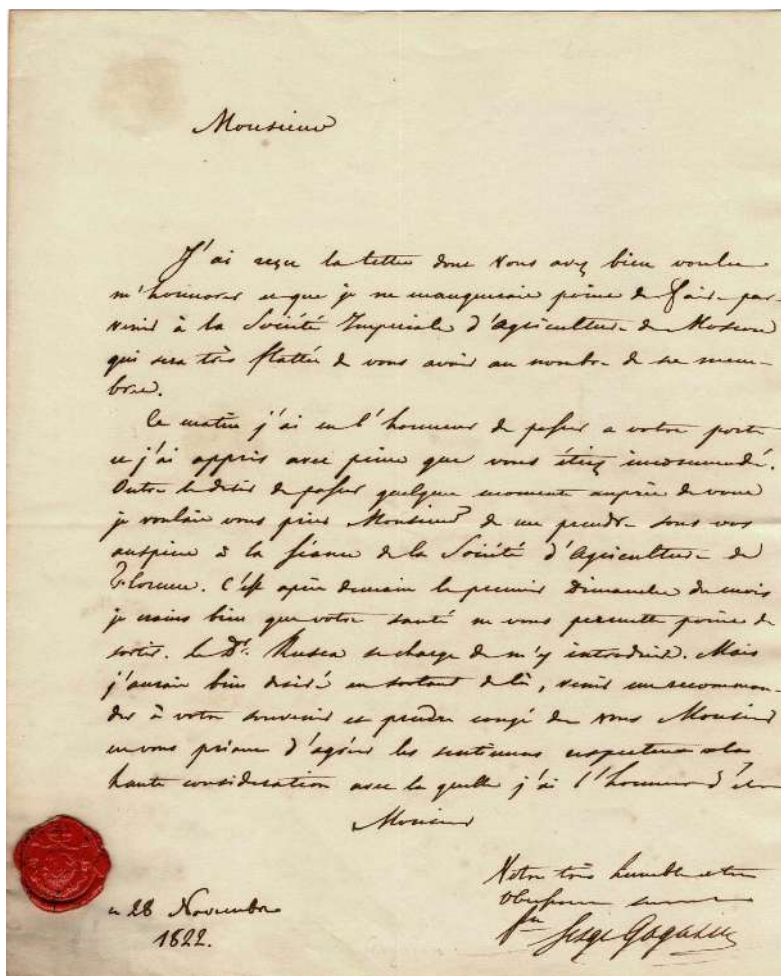 Monsieur
J'ai reçu la lettre dont vous avez bien voulu
m'honnorer et que je ne manquerais point de faire par-
venir à la Société Imperiale d'agriculture de Moscou
qui sera très flattée de vous avoir au nombre de ses mem-
bres.
Ce matin j'ai eu l'honneur de passer a votre porte
et j'ai appris avec peine que vous étiez incommodé.
Outre le désir de passer quelque moments auprès de vous
je voulais vous prier Monsieur de me prendre sous vos
auspices à la séance de la Société d'Agriculture de
Florence. C'est après demain le premier Dimanche du mois
je crains bien que votre santé ne vous permette point de
sortir. le Dr. Rusca se charge de m'y introduire. Mais
j'aurais bien désiré en sortant de là, venir me recomman-
der à votre souvenir et prendre congé de vous Monsieur
en vous priant d'agréer les sentimens respectueux et la
haute considération avec la quelle j'ai l'honneur d'être
Monsieur
Votre très humble et très
obeissant serviteur
Pce Serge Gagarin
ce 28 Novembre
1822.